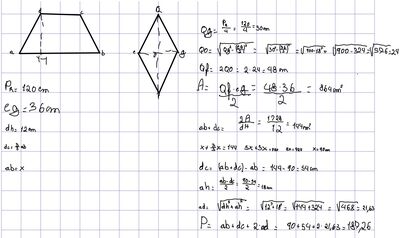 d c
a H b
Q
e o g
f
P_R = 120 cm
eg = 36 cm
dh = 12 cm
dc = 3/5 ab
ab = x
Qg = P_R/4 = 120/4 = 30 cm
QO = √(Qg² - (eg/2)²) = √(30² - (36/2)²) = √(900 - 18²) = √900-324 = √576 = 24
Qf = 2QO = 2·24 = 48 cm
A = Qf·eg/2 = 48·36/2 = 864 cm²
ab + dc = 2A/dH = 1728/12 = 144 cm
x + 3/5 x = 144 5x + 3x = 720 8x = 720 x = 90 cm
dc = (ab + dc) - ab = 144 - 90 = 54 cm
ah = ab-dc/2 = 90-54/2 = 18 cm
ad = √(dh² + ah²) = √(12² + 18²) = √144+324 = √468 = 21,63
P = ab + dc + 2ad = 90 + 54 + 2·21,63 = 187,26